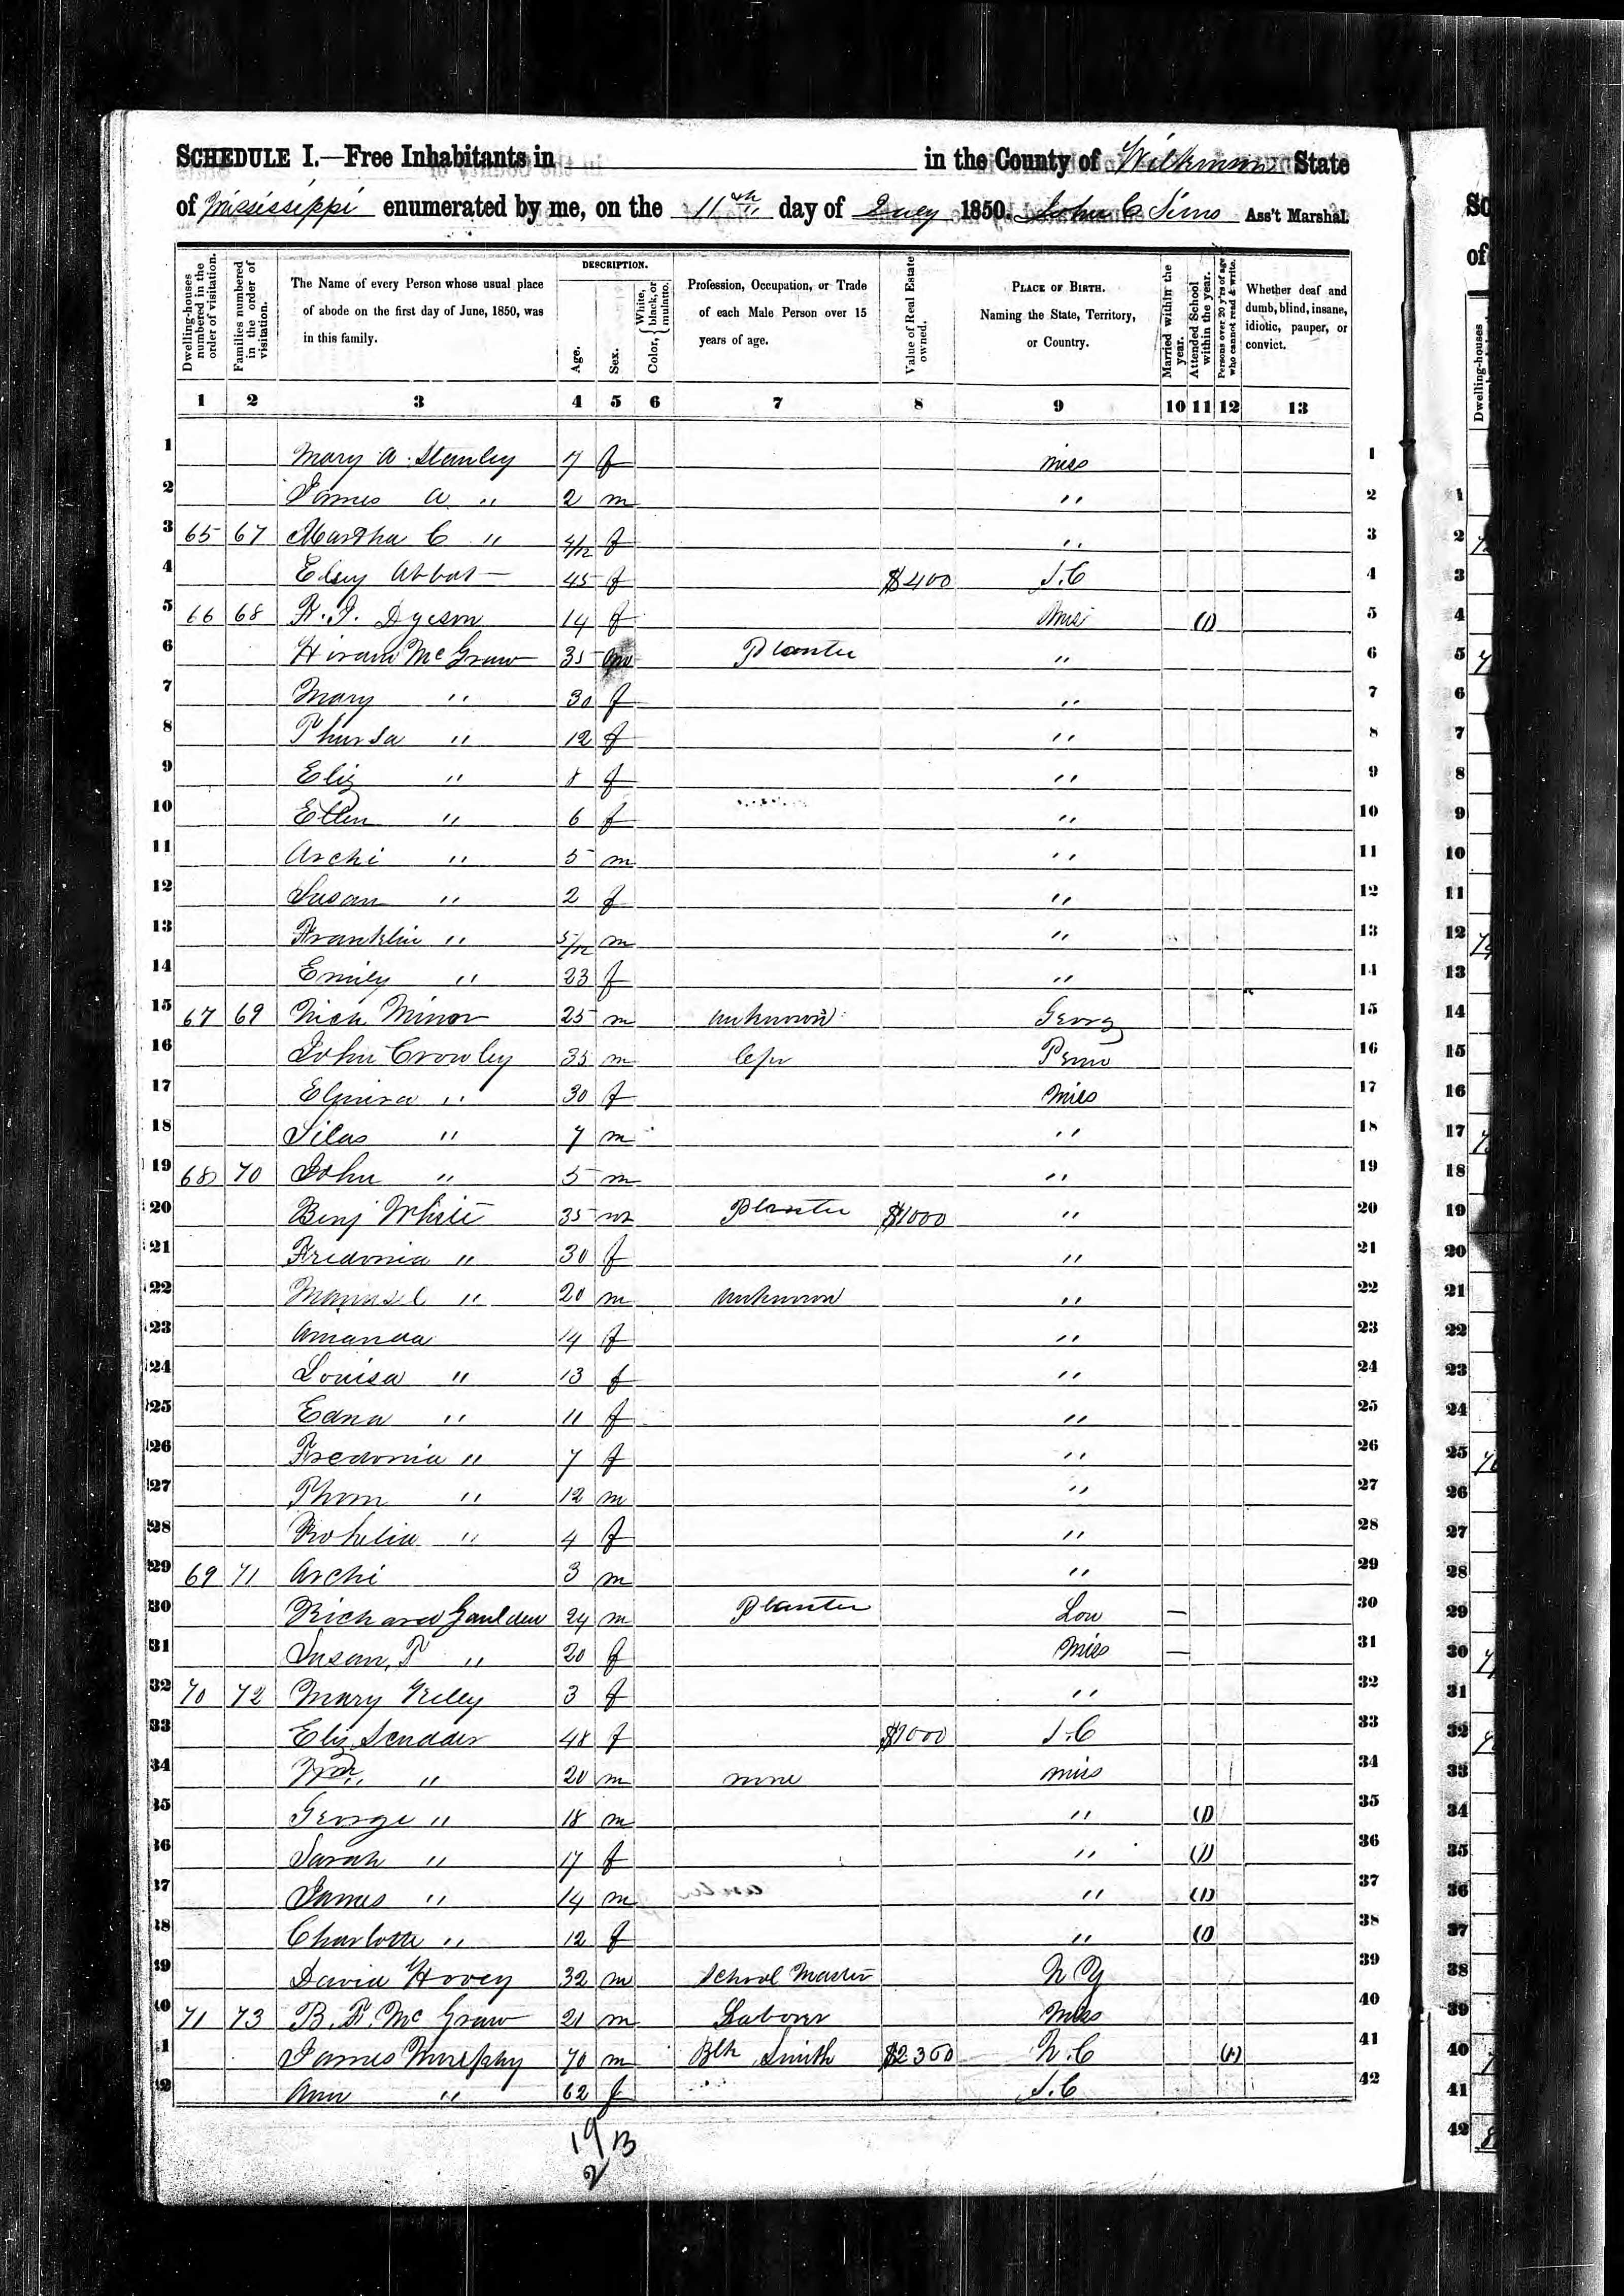 SCHEDULE I.—Free Inhabitants in in the County of Wilkinson State
of Mississippi enumerated by me, on the 11th day of July 1850. John C Sims Ass't Marshal.
Dwelling-houses numbered in the order of visitation.
Families numbered in the order of visitation.
The Name of every Person whose usual place of abode on the first day of June, 1850, was in this family.
DESCRIPTION.
Age.
Sex.
Color, { White, black, or mulatto.
Profession, Occupation, or Trade of each Male Person over 15 years of age.
Value of Real Estate owned.
PLACE OF BIRTH. Naming the State, Territory, or Country.
Married within the year.
Attended School within the year.
Persons over 20 y'rs of age who cannot read & write.
Whether deaf and dumb, blind, insane, idiotic, pauper, or convict.
1 2 3 4 5 6 7 8 9 10 11 12 13
1 Mary A. Stanley 7 f Miss 1
2 James A " 2 m " 2
3 65 67 Martha C " 4/12 f " 3
4 Elsey Abbot 45 f $400 S.C 4
5 66 68 14 f Miss (1) 5
6 Hiram McGraw 35 m Planter " 6
7 Mary " 30 f " 7
8 Thursa " 12 f " 8
9 Eliz " 8 f " 9
10 Ellen " 6 f " 10
11 Archi " 5 m " 11
12 Susan " 2 f " 12
13 Franklin " 5/12 m " 13
14 Emily " 23 f " 14
15 67 69 Nich Minor 25 m unknown Georg 15
16 John Crowley 35 m Penn 16
17 Elmira " 30 f Miss 17
18 Silas " 7 m " 18
19 68 70 John " 5 m " 19
20 Benj White 35 m Planter $1000 " 20
21 Fredonia " 30 f " 21
22 " 20 m unknown " 22
23 Amanda 14 f " 23
24 Louisa " 13 f " 24
25 Edna " 11 f " 25
26 Fredonia " 7 f " 26
27 Thom " 12 m " 27
28 " 4 f " 28
29 69 71 Archi 3 m " 29
30 Richard Gaulden 24 m Planter Lou — 30
31 Susan, P " 20 f Miss — 31
32 70 72 Mary 3 f " 32
33 Eliz Scudder 48 f $1000 S.C 33
34 Wm " 20 m none Miss 34
35 George " 18 m " (1) 35
36 Sarah " 17 f " (1) 36
37 James " 14 m " (1) 37
38 Charlotte " 12 f " (1) 38
39 David Hovey 32 m School Master N Y 39
40 71 73 B. F. McGraw 21 m Labour Miss 40
41 James Murphy 70 m Blk Smith $2300 N.C (1) 41
42 Ann " 62 f S.C 42
19/2 13